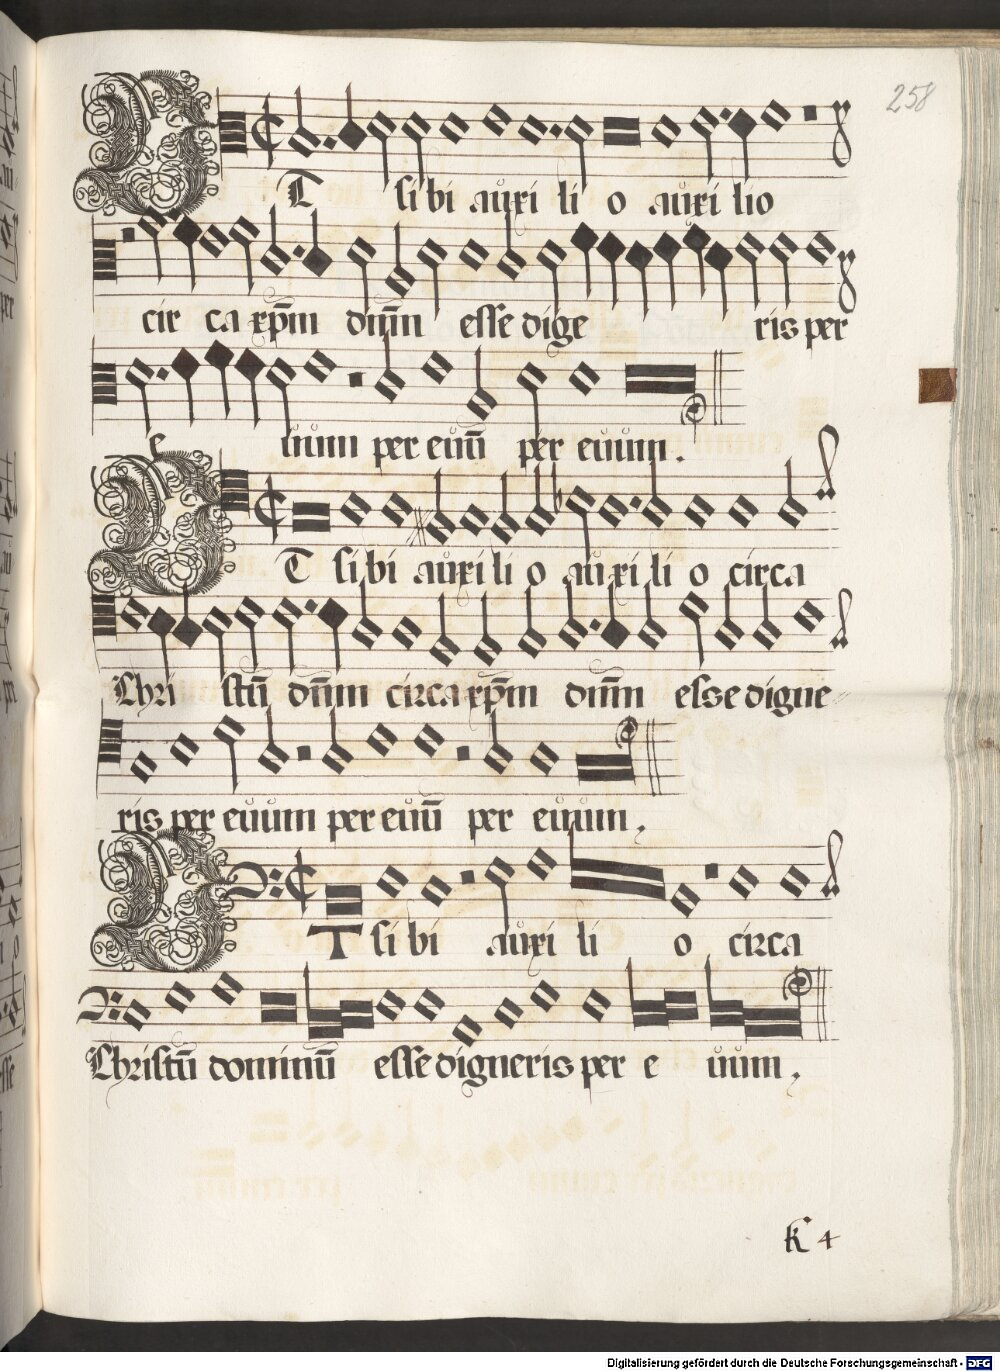 258
ET sibi auxi li o auxi lio
cir ca xp̄m dn̄m esse dige ris per
e uum per euū per euum.
ET sibi auxi li o auxi li o circa
Chri stū dn̄m circa xp̄m dn̄m esse digne
ris per euum per euū per euum,
ET sibi auxi li o circa
Christū dominū esse digneris per e uum,
K 4
Digitalisierung gefördert durch die Deutsche Forschungsgemeinschaft - DFG